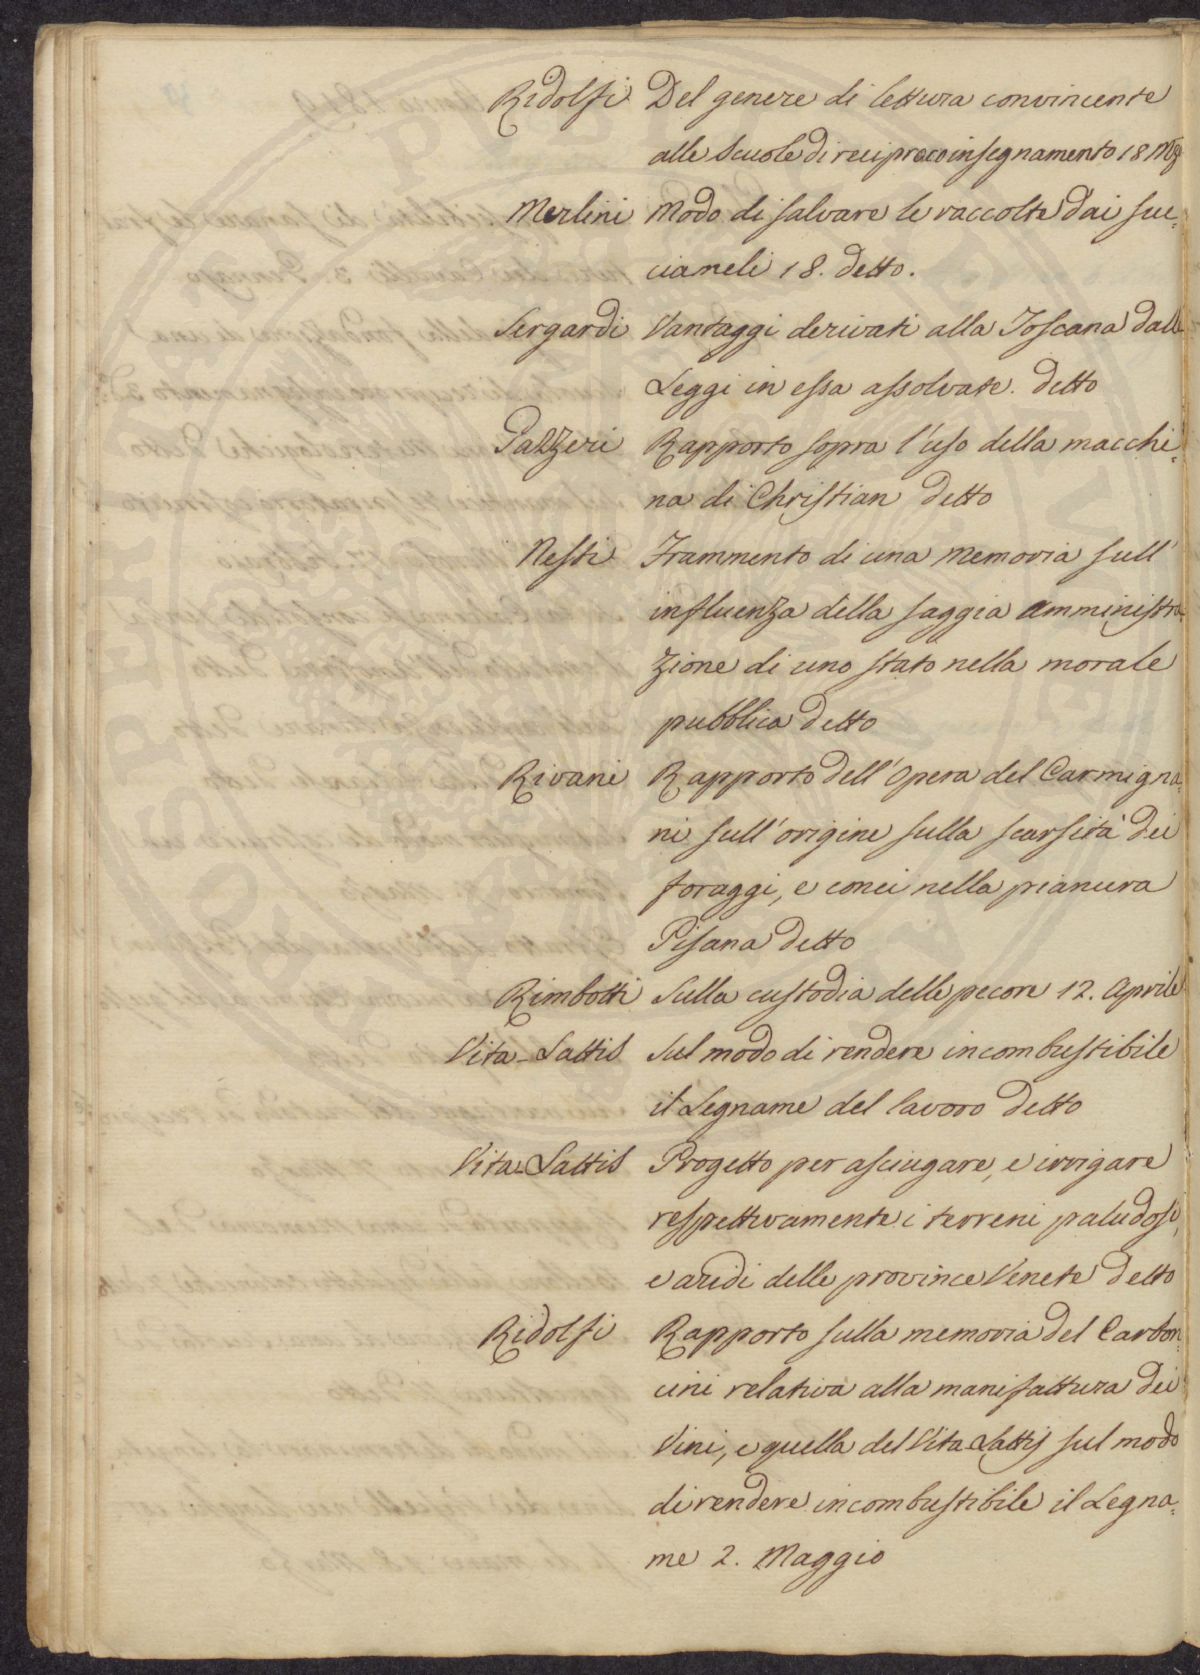 Ridolfi Del genere di lettura convincente
alle Scuole di reciproco insegnamento 18 Mg
Merlini Modo di salvare le raccolte dai suc=
ciameli 18. detto.
Sergardi Vantaggi derivati alla Toscana dalle
Leggi in essa assolvate. detto
Pazzeri Rapporto sopra l'uso della macchi=
na di Christian detto
Nesti Frammento di una Memoria sull'
influenza della saggia amministra=
zione di uno stato nella morale
pubblica detto
Rivani Rapporto dell'Opera del Carmigna=
ni sull'origine sulla scarsità dei
foraggi, e conci nella pianura
Pisana detto
Rimbotti Sulla custodia delle pecore 12. Aprile
Vita-Lattis Sul modo di rendere incombustibile
il Legname del lavoro detto
Vita-Lattis Progetto per asciugare, e irrigare
respettivamente i terreni paludosi,
e aridi delle province Venete detto
Ridolfi Rapporto sulla memoria del Carbon=
cini relativa alla manifattura dei
Vini, e quella del Vita-Lattis sul modo
di rendere incombustibile il Legna=
me 2. Maggio